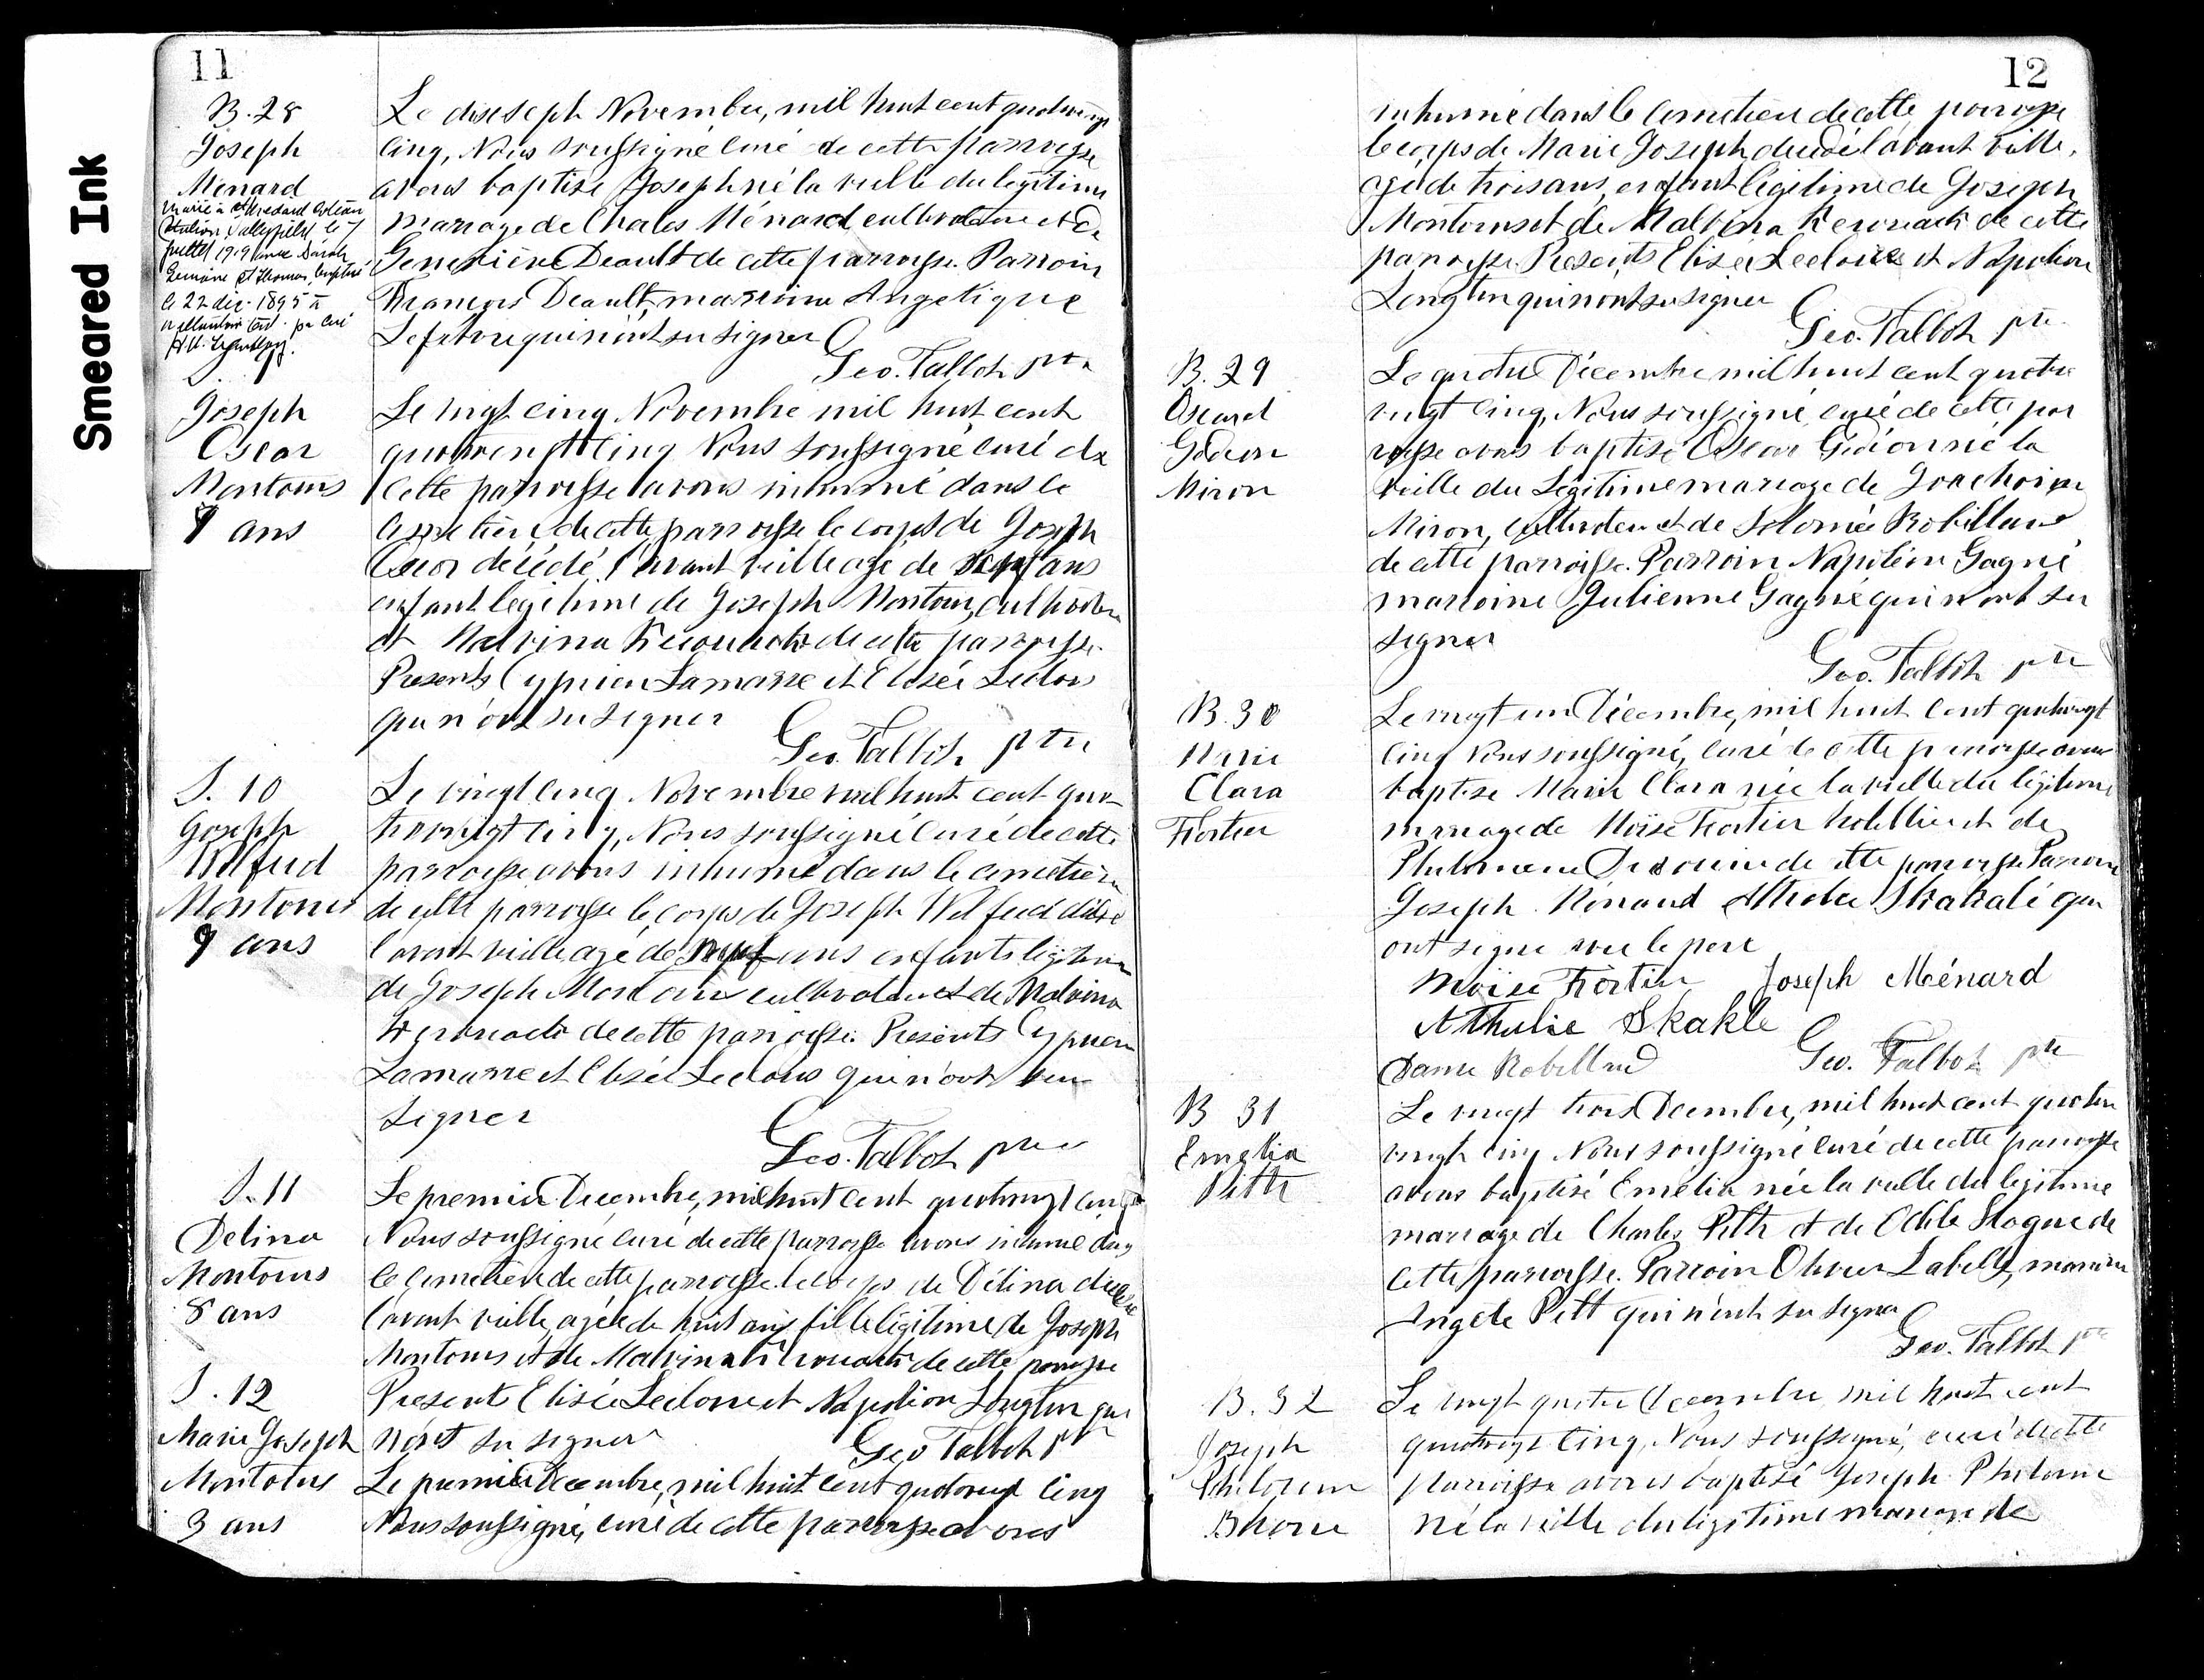 Smeared Ink
11
B. 28
Joseph
Ménard
Le dix sept Novembre, mil huit cent quatrevingt
cinq, Nous soussigné curé de cette parroisse
avons baptisé Joseph né la veille du légitime
mariage de Charles Ménard cultivateur et de
Geneviève Deault de cette parroisse. Parroin
François Deault, marroine Angelique
Lefebvre qui n'ont su signer
Geo. Talbot ptre
S.
Joseph
Oscar
Montours
7 ans
Le vingt cinq Novembre mil huit cent
quatrevingt cinq Nous soussigné curé de
cette parroisse avons inhumé dans le
cimetière de cette parroisse le corps de Joseph
Oscar décédé l'avant veille agé de sept ans
enfant légitime de Joseph Montour, cultivateur
et Malvina de cette parroisse.
Presents Cyprien Lamarre et Elisée Leclous
qui n'ont su signer
Geo. Talbot ptre
S. 10
Joseph
Wilfred
Montours
9 ans
Le vingt cinq Novembre mil huit cent qua-
trevingt cinq, Nous soussigné curé de cette
parroisse avons inhumé dans le cimetière
de cette parroisse le corps de Joseph Wilfred décédé
l'avant veille agé de neuf ans enfants légitime
de Joseph Montours cultivateur et de Malvina
de cette parroisse. Presents Cyprien
Lamarre et Elisée Leclous qui n'ont su
signer
Geo. Talbot ptre
S. 11
Delina
Montours
8 ans
Le premier Decembre, mil huit cent quatrevingt cinq
Nous soussigné curé de cette parroisse avons inhumé dans
le cimetière de cette parroisse le corps de Délina décédée
l'avant veille agée de huit ans fille légitime de Joseph
Montours et de Malvina de cette parroisse
Presents Elisée Leclous et Napoléon Longtin qui
n'ont su signer
Geo Talbot ptre
S. 12
Marie Joseph
Montours
3 ans
Le premier Decembre, mil huit cent quatrevingt cinq
Nous soussigné, curé de cette parroisse avons
12
inhumé dans le cimetière de cette parroisse
le corps de Marie Joseph decédé l'avant veille,
agé de trois ans, enfant légitime de Joseph
Montours et de Malvina de cette
parroisse. Presents Elisée Leclous et Napoléon
Longtin qui n'ont su signer
Geo. Talbot ptre
B. 29
Oscard
Gédéon
Miron
Le quatre Décembre mil huit cent quatre
vingt cinq, Nous soussigné, curé de cette par
roisse avons baptisé Oscar Gédéon né la
veille du Légitime mariage de Joachim
Miron, cultivateur et de Solomée Robillard
de cette parroisse. Parroin Napoléon Gagné
marroine Julienne Gagné qui n'ont su
signer
Geo. Talbot ptre
B. 30
Marie
Clara
Fortier
Le vingt un Décembre, mil huit cent quatrevingt
cinq Nous soussigné, curé de cette parroisse avons
baptisé Marie Clara née la veille du légitime
mariage de Moïse Fortier hotellier et de
Philomene de cette parroisse Parroin
Joseph Ménard qui
ont signé avec le pere
Moïse Fortier Joseph Ménard
Athulie Skakle
Geo. Talbot ptre
Robillard
B 31
Emelia
Pitt
Le vingt trois Decembre, mil huit cent quatre
vingt cinq Nous soussigné curé de cette parroisse
avons baptisé Emélia née la veille du legitime
mariage de Charles Pitt et de Odile de
cette parroisse. Parroin Olivier Labelle, marroine
Angele Pitt qui n'ont su signer
Geo. Talbot ptre
B. 32
Joseph
Philorum
Le vingt quatre Decembre mil huit cent
quatrevingt cinq, Nous soussigné, curé de cette
parroisse avons baptisé Joseph
né la veille du légitime mariage de